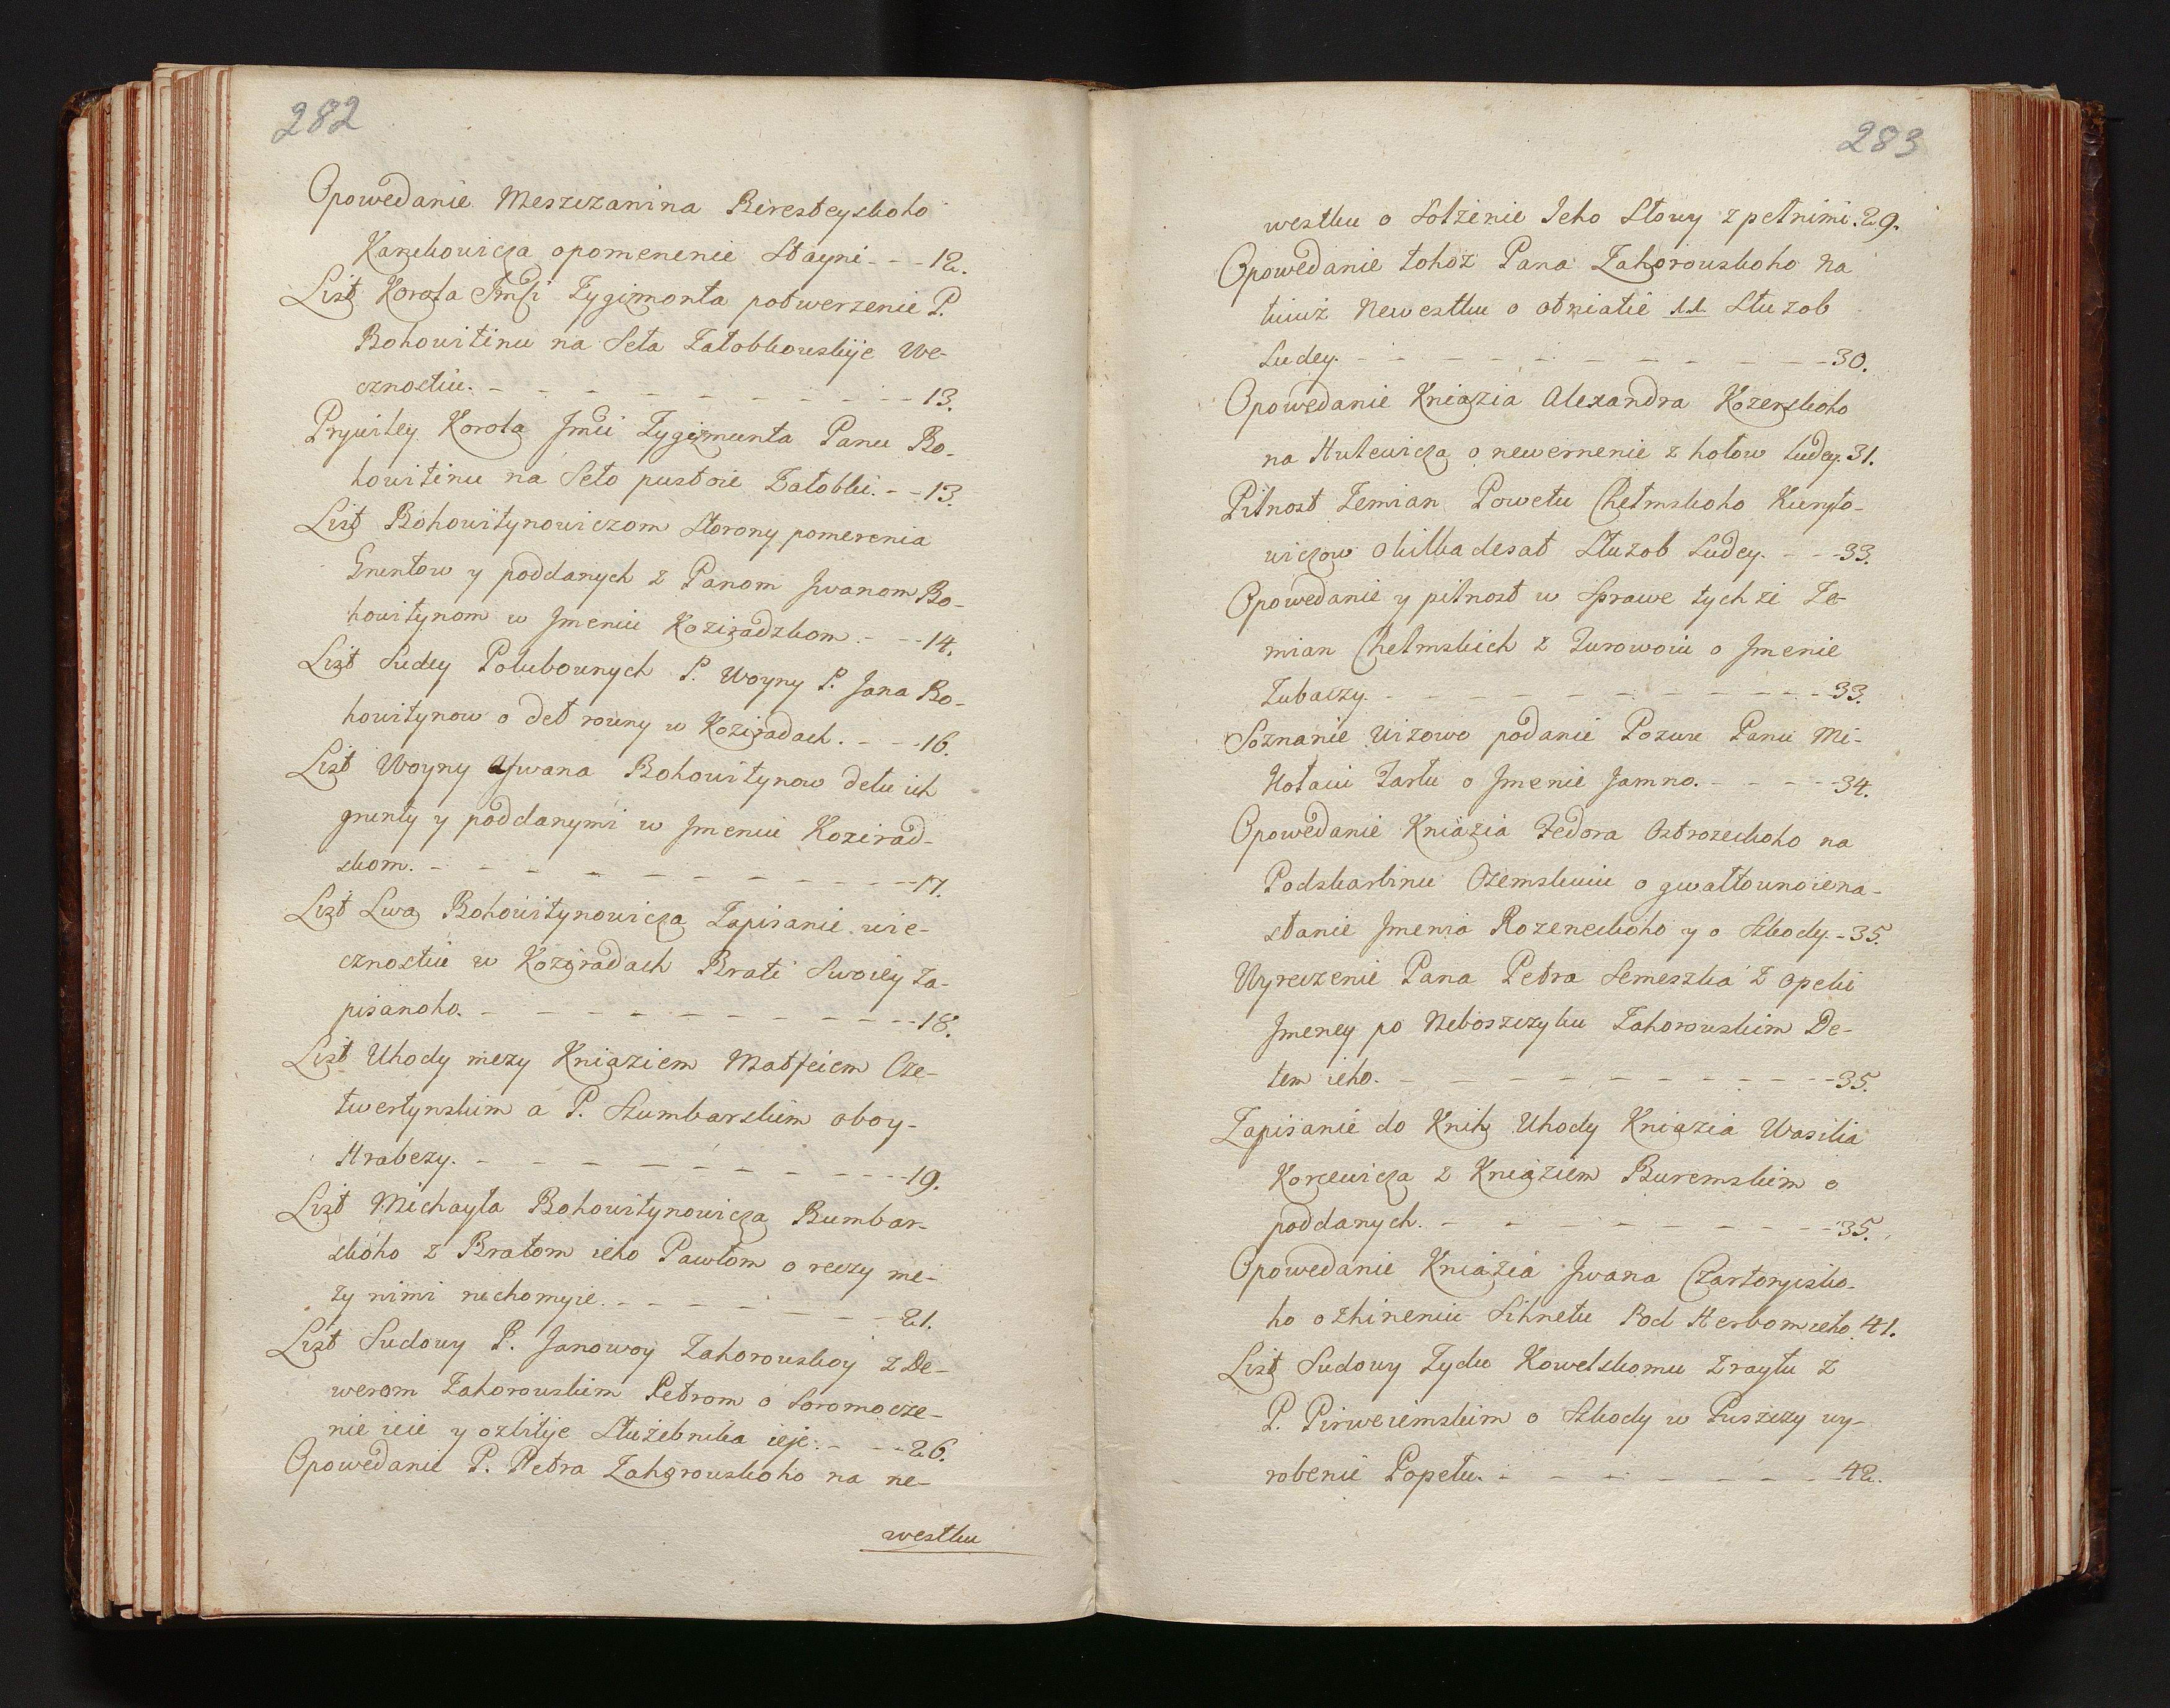 282
Opowedanie Meszczanina Beresteyskoho
Kanckowicza opomenenie Stayni - - - 12.
List Korola Jmsti Zygimonta potwerzenie P.
Bohowitinu na Seła Załobkowskije We-
cznostiu. - - - - - - - - - - 13.
Prywiley Korola Jmsti Zygimunta Panu Bo-
howitinu na Seło pustoie Załobki. - - 13.
List Bohowitynowiczom Storony pomerenia
Gruntow y poddanych z Panom Jwanom Bo-
howitynom w Jmeniu Kozieradzkom. - - - 14.
List Sudey Polubownych P. Woyny P. Jana Bo-
howitynow o deł rowny w Kozieradach. - - - 16.
List Woyny Jwana Bohowitynow delu ich
grunty y poddanymi w Jmeniu Kozirad-
skom. - - - - - - - - - - 17.
List Lwa Bohowitynowicza Zapisanie wie-
cznostiu w Kozieradach Brati Swoiey za-
pisanoho. - - - - - - - - - 18.
List Uhody mezy Kniaziem Matfeiem Cze-
twertynskim a P. Szumbarskim oboy-
Hrabezy. - - - - - - - - - 19.
List Michayła Bohowitynowicza Bumbar-
skoho z Bratom ieho Pawłom o reczy me-
zy nimi ruchomyie. - - - - - - 21.
List Sudowy P. Janowoy Zahorowskoy z De-
werom Zahorowskim Petrom o Soromocze-
nie ieie y ozbitije Służebnika ieje. - - - 26.
Opowedanie P. Petra Zahorowskoho na ne-
westku
283
westku o Sołzenie Jeho Słowy zpełnimi. 29.
Opowedanie tohoż Pana Zahorowskoho na
tuiuż Newestku o otniatie 11. Służob
Ludey. - - - - - - - - - - 30.
Opowedanie Kniazia Alexandra Kozerskoho
na Hulewicza o newernenie z hołow Ludey. 31.
Pilnost Zemian Powetu Chełmskoho Kuryło-
wiczow o kilkadesat Służob Ludey. - - - 33.
Opowedanie y pilnost w Sprawe tychże Ze-
mian Chełmskich z Zurowoiu o Jmenie
Zubaczy. - - - - - - - - - - 33.
Soznanie Wizowo podanie Pozwu Panu Mi-
kołaiu Zarku o Jmenie Jamno. - - - - 34.
Opowedanie Kniazia Fedora Ostrozeckoho na
Podskarbinu Ozemskuiu o gwałtownoie na-
słanie Jmenia Rozeneckoho y o Szkody. - 35.
Wyreczenie Pana Petra Semeszka z opeki
Jmeney po Neboszczyku Zahorowskim De-
tem ieho. - - - - - - - - - - 35.
Zapisanie do Knih Uhody Kniazia Wasilia
Korcewicza z Kniaziem Buremskim o
poddanych. - - - - - - - - - 35.
Opowedanie Kniazia Jwana Czartoryisko-
ho o zhineniu Sihnetu Pod Herbom ieho. 41.
List Sudowy Zydu Kowelskomu Zraylu z
P. Pirweiemskim o Szkody w Puszczy wy-
robenie Popełu. - - - - - - - - 42.